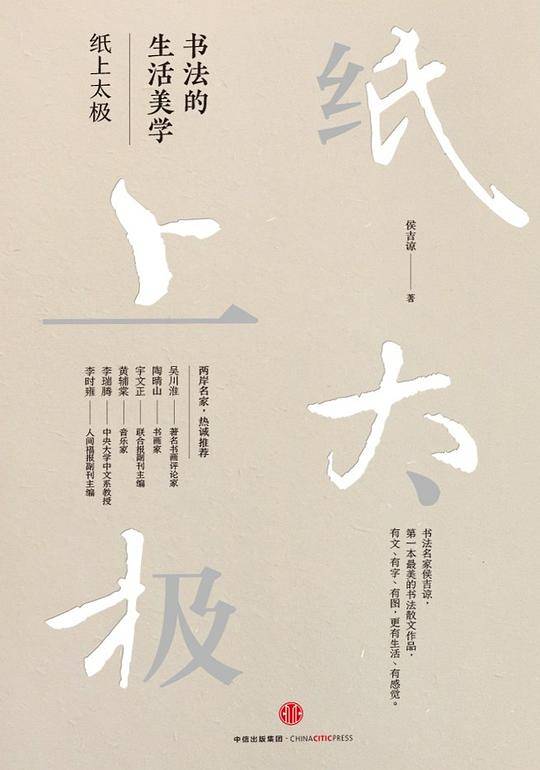 纸上太极
书法的
生活美学
纸上太极
侯吉谅——著
两岸名家，热诚推荐
吴川淮——著名书画评论家
陶晴山——书画家
宇文正——联合报副刊主编
黄辅棠——音乐家
李瑞腾——中央大学中文系教授
李时雍——人间福报副刊主编
书法名家侯吉谅，
第一本最美的书法散文作品，
有文、有字、有图，更有生活、有感觉。
中信出版集团·CHINACITICPRESS